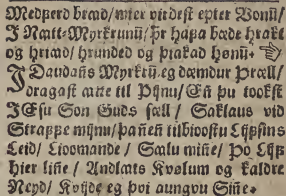 Medperd bræd/ mier virdest epter Vonū/
I Natt-Myrkrunū/ Þr hafa bæde hrakt
og hriad/ hrunded og þiakad hønū.
I Daudans Myrkrū eg dæmdur Þræll/
dragast ætte til Pijnu/ En þu tookst
JEsu Son Guds sæll/ Saklaus vid
Strappe mijnu/ þañeñ tilbioostu Lijfsins
Leid/ Lioomande/ Sælu miñe/ Þo Lijf
hier liñe/ Andlæts Kvølum og kaldre
Neyd/ Kvijde eg þvi aungvu Siñe.